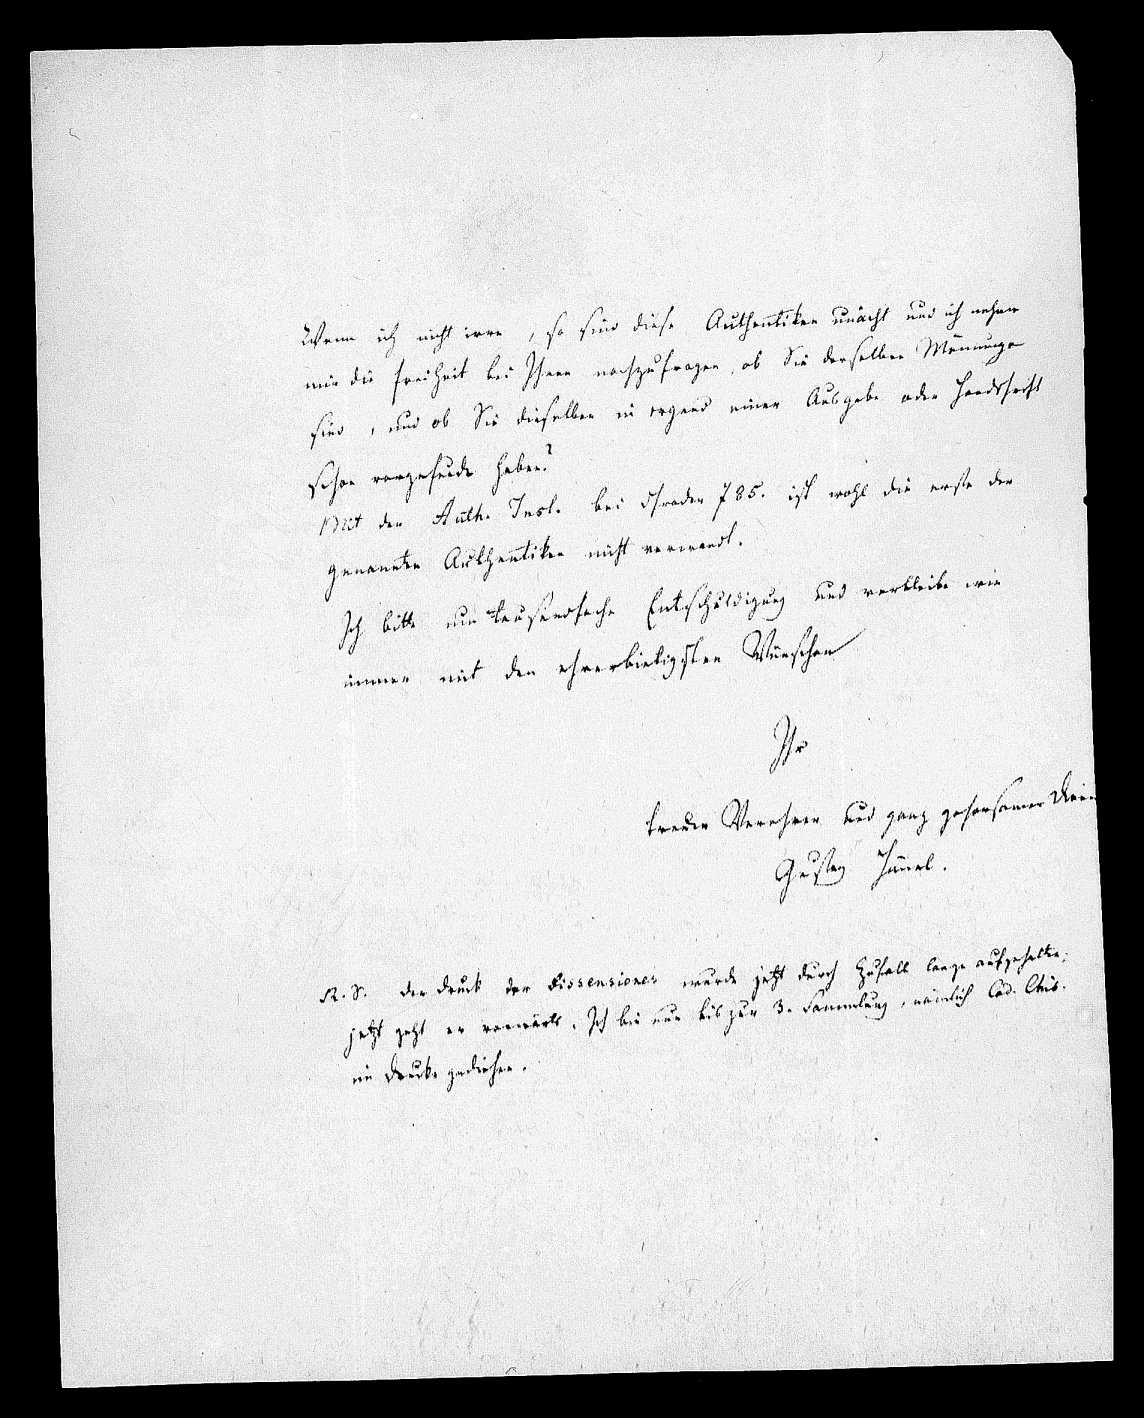 Wenn ich nicht irre, so sind diese Authentiken unächt und ich nehme
mir die Freiheit bei Ihnen nachzufragen, ob Sie derselben Meinung
sind, und ob Sie dieselben in irgend einer Ausgabe oder Handschrift
schon vorgefunden haben?
Mit der Auth. Inst. bei Schrader 785. ist wohl die erste der
genannten Authentiken nicht verwandt.
Ich bitte um tausendfache Entschuldigung und verbleibe wie
immer mit den ehrerbietigsten Wünschen
Ihr
treuer Verehrer und ganz gehorsamer
Gustav Hänel.
N. S. Der Druck der Dissensiones wurde jetzt durch Zufall lange aufgehalten;
jetzt geht er vorwärts. Ich bin nun bis zur 3. Sammlung, nämlich Cod. Chis.
im Drucke gediehen.